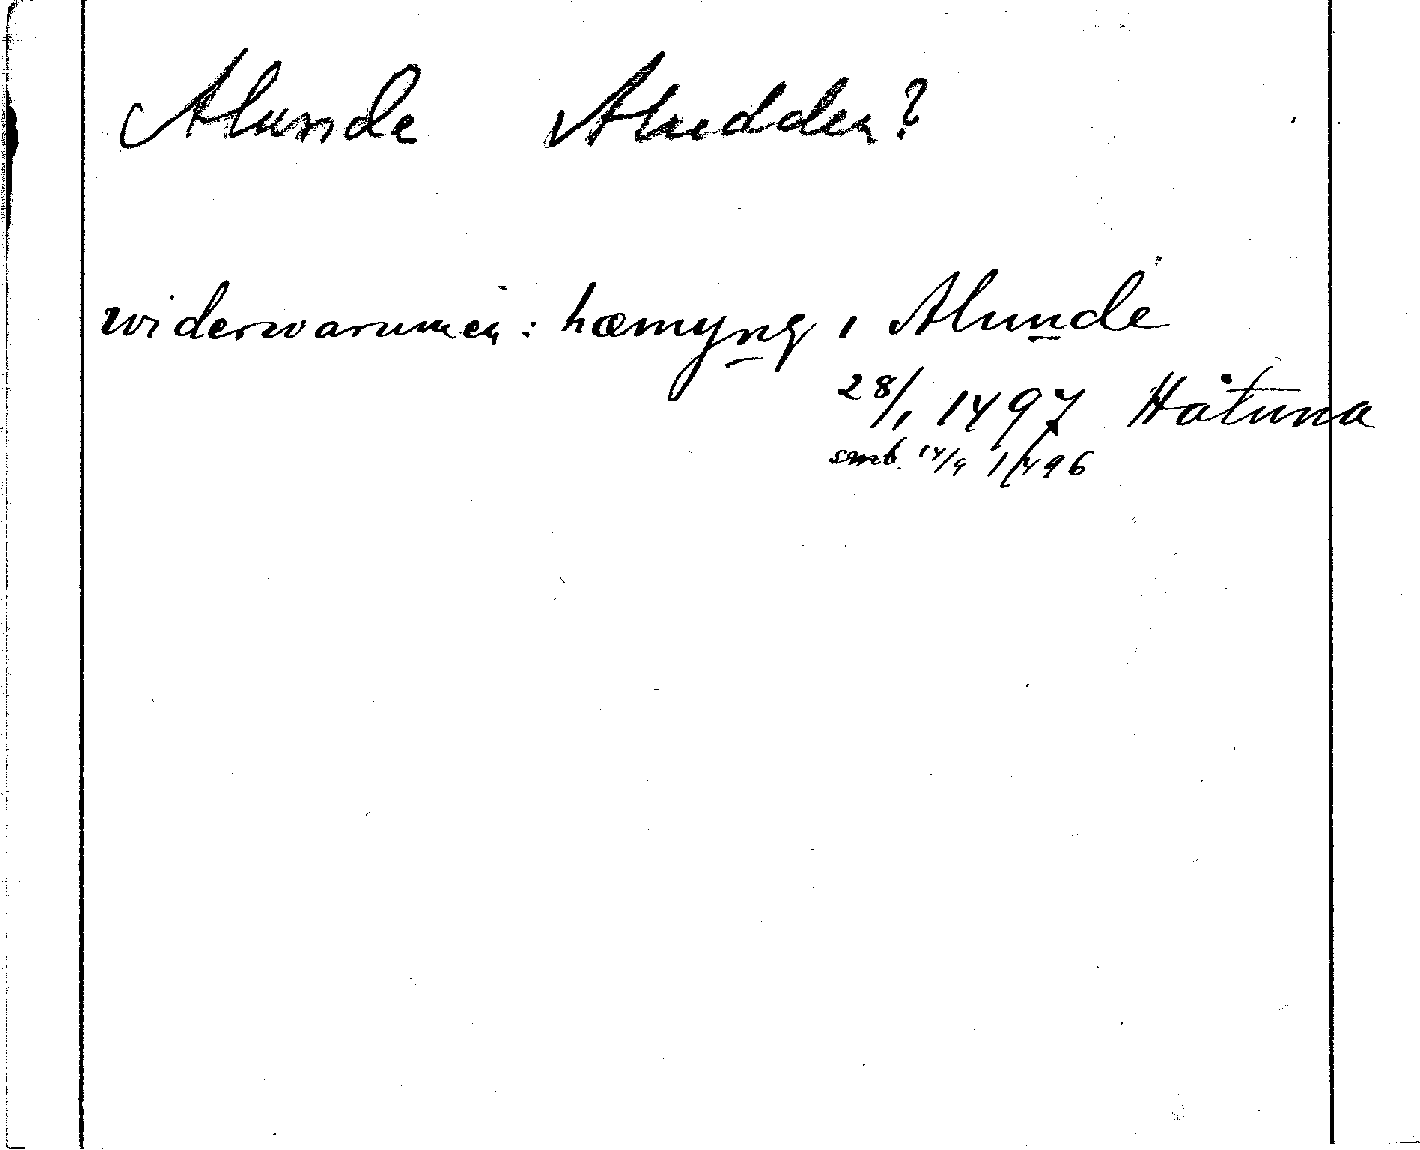 Alunde Aludden?
widerwarumen: hæmyng i Alunde
28/1 1497 Håtuna
smb. 14/9 1496